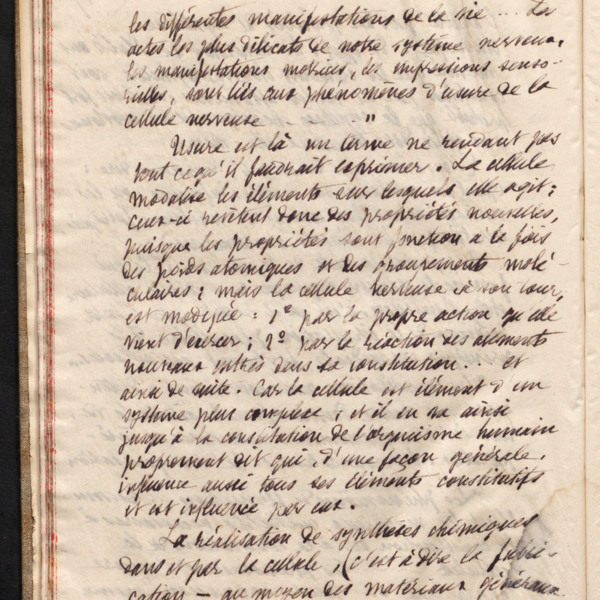 les différentes manifestations de la vie ... Les
actes les plus délicats de notre système nerveux,
les manifestations motrices, les impressions senso-
rielles, sont liés aux phénomènes d'usure de la
cellule nerveuse "
Usure est là un terme ne rendant pas
tout ce qu'il faudrait exprimer. La cellule
modalise les éléments sur lesquels elle agit;
ceux-ci revêtent donc des propriétés nouvelles,
puisque les propriétés sont fonction à la fois
des poids atomiques et des groupements molé-
culaires; mais la cellule nerveuse à son tour,
est modifiée : 1º par la propre action qu'elle
vient d'exercer; 2º par la réaction des aliments
nouveaux entrés dans sa constitution... et
ainsi de suite. Car la cellule est élément d'un
système plus complexe; et il en va ainsi
jusqu'à la constitution de l'organisme humain
proprement dit qui, d'une façon générale,
influence aussi tous ses éléments constitutifs
et est influencée par eux.
La réalisation de synthèses chimiques
dans et par la cellule, (c'est à dire la fabri-
cation — au moyen des matériaux généraux